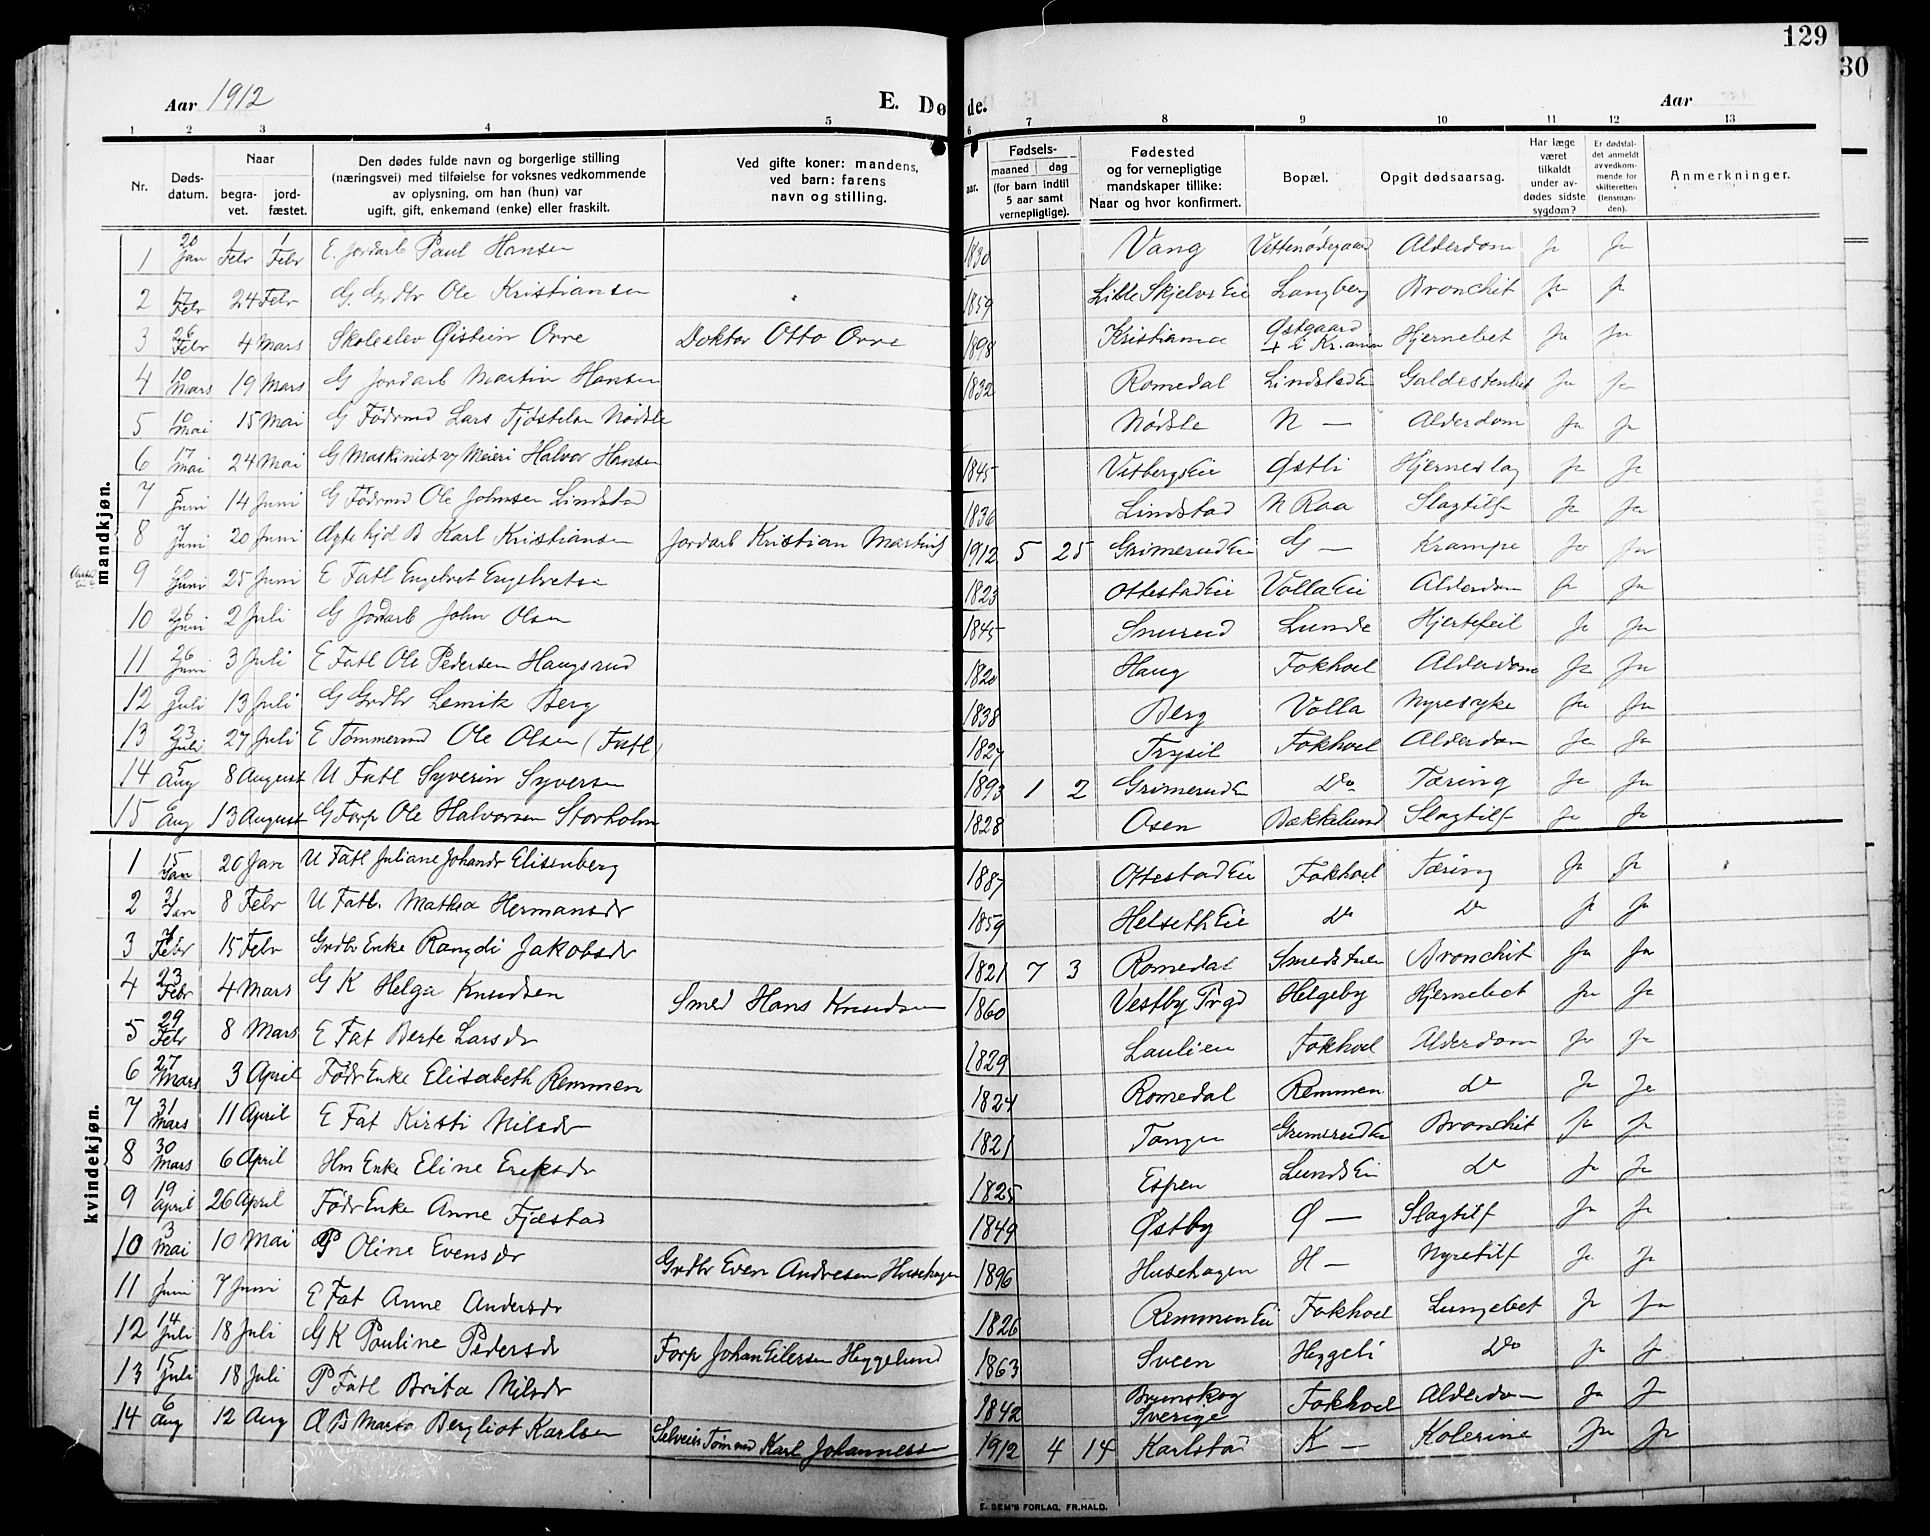 129
30
Aar 1912
E. Døde.
Aar
1 2 3 4 5 6 7 8 9 10 11 12 13
Nr.
Døds-datum.
Naar
begra-vet.
jord-fæstet.
Den dødes fulde navn og borgerlige stilling
(næringsvei) med tilføielse for voksnes vedkommende
av oplysning, om han (hun) var
ugift, gift, enkemand (enke) eller fraskilt.
Ved gifte koner: mandens,
ved barn: farens
navn og stilling.
aar.
Fødsels-
maaned dag
(for barn indtil
5 aar samt
vernepligtige).
Fødested
og for vernepligtige
mandskaper tillike:
Naar og hvor konfirmert.
Bopæl.
Opgit dødsaarsag.
Har læge
været
tilkaldt
under av-
dødes sidste
sygdom?
Er dødsfal-
det anmeldt
av vedkom-
mende for
skifteretten
(lensman-
den).
Anmerkninger.
mandkjøn.
1 20 Jan 1 Febr 1 Febr E. Jordarb Paul Hansen 1830 Vang Vettenødegaard Alderdom Ja Ja
2 17 Febr 24 Febr G. Grdbr Ole Kristiansen 1859 Lille Skjelvs Eie Langberg Bronchit Ja Ja
3 26 Febr 4 Mars Skoleelev Øistein Orre Doktor Otto Orre 1898 Kristiania Østgaard + i Kr.ania Hjernebet Ja Ja
4 10 Mars 19 Mars G Jordarb Martin Hansen 1832 Romedal Lindstad Ei Galdestenbet Ja Ja
5 10 Mai 15 Mai G Fødrmd Lars Fjøstelsn Nødsle Nødsle N — Alderdom Ja Ja
6 17 Mai 24 Mai G Maskinist v Meieri Halvor Hansen 1845 Vestbergs Eie Østli Hjerneslag Ja Ja
7 5 Juni 14 Juni G Fødrmd Ole Johnsen Lindstad 1836 Lindstad N Raa Slagtilf Ja Ja
8 7 Juni 20 Juni Ægte hjd B Karl Kristiansen Jordarb Kristian Martins 1912 5 25 Grimerud Eie G — Krampe Ja Ja
9 Juni 25 Juni E Fatl Engebret Engebretsn 1823 Ottestad Eie Volla Eie Alderdom Ja Ja
10 26 Juni 2 Juli G Jordarb John Olsen 1845 Snurud Lunde Hjertefeil Ja Ja
11 26 Juni 3 Juli E Fatl Ole Pedersen Haugsrud 1820 Haug Fokhoel Alderdom Ja Ja
12 Juli 13 Juli G Grdbr Lemik Berg 1838 Berg Volla Nyresyke Ja Ja
13 23 Juli 27 Juli E Tømmermd Ole Olsen (Fatl) 1827 Trysil Fokhoel Alderdom Ja Ja
14 5 Aug 8 August U Fatl Syverin Syversn 1893 1 2 Grimerud Ei Do Tæring Ja Ja
15 6 Aug 13 August G Forp Ole Halvorsen Storholm 1828 Osen Bækkelund Slagtilf Ja Ja
kvindekjøn.
1 15 Jan 20 Jan U Fatl Juliane Johandr Elisenberg 1887 Ottestad Eie Fokhoel Tæring Ja Ja
2 31 Jan 8 Febr U Fatl. Mathea Hermansdr 1859 Helseth Eie Do Do Ja Ja
3 7 Febr 15 Febr Grdbr Enke Rangdi Jakobsdr 1821 7 3 Romedal Smedstuen Bronchit Ja Ja
4 23 Febr 4 Mars G K Helga Knudsen Smed Hans Knudsen 1860 Vestby Prgd Helgeby Hjernebet Ja Ja
5 29 Febr 8 Mars E Fat Berte Larsdr 1829 Laulien Fokhoel Alderdom Ja Ja
6 27 Mars 3 April Fødr Enke Elisabeth Remmen 1824 Romedal Remmen Do Ja Ja
7 31 Mars 11 April E Fat Kirsti Nilsdr 1821 Tangen Grimerud Ei Bronchit Ja Ja
8 30 Mars 6 April Hm Enke Eline Eriksdr 1825 Espen Lunds Ei Do Ja Ja
9 19 April 26 April Fødr Enke Anne Fjæstad 1849 Østby Ø — Slagtilf Ja Ja
10 3 Mai 10 Mai P Oline Evensdr Grdbr Even Andresen Husehagen 1896 Husehagen H — Nyretilf Ja Ja
11 1 Juni 7 Juni E Fat Anne Andersdr 1826 Remmen Eie Fokhoel Lungebet Ja Ja
12 14 Juli 18 Juli G K Pauline Pedersdr Forp Johan Eilersen Heggelund 1863 Sveen Heggeli Do Ja Ja
13 15 Juli 18 Juli P Fatl Brita Nilsdr 1842 Brunskog Sverige Fokhoel Alderdom Ja Ja
14 6 Aug 12 Aug Æ B Marta Bergliot Karlsen Selveier Tømmd Karl Johannessn 1912 4 14 Karlstad K — Kolerine Ja Ja
E. SEM'S FORLAG, FR.HALD.